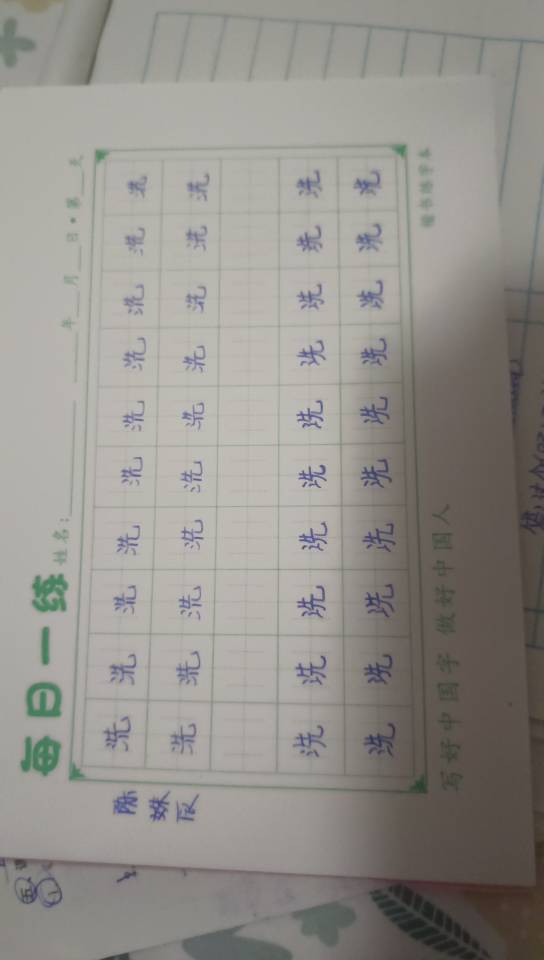 每日一练
姓名:________ ____年___月___日·第___天
陈姝
洗洗洗洗洗洗洗洗洗洗
洗洗洗洗洗洗洗洗洗洗
洗洗洗洗洗洗洗洗洗洗
洗洗洗洗洗洗洗洗洗洗
写好中国字 做好中国人
楷书练字本